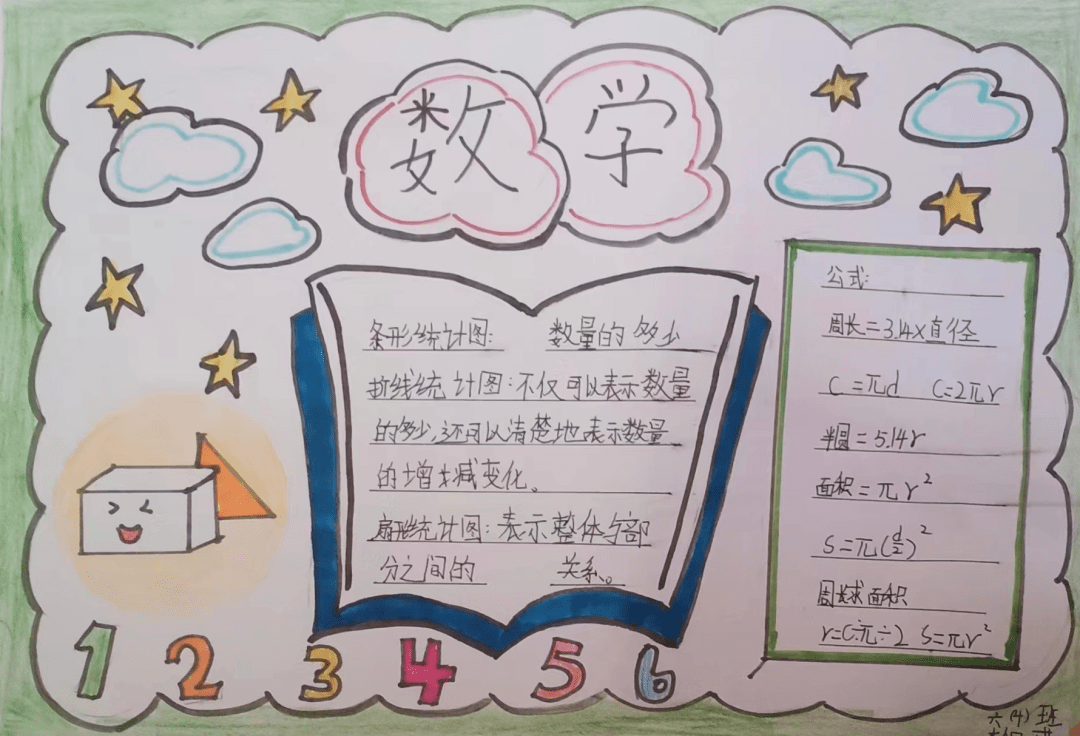 数学
条形统计图: 数量的多少
折线统计图:不仅可以表示数量
的多少,还可以清楚地表示数量
的增减变化。
扇形统计图:表示整体与部
分之间的 关系。
公式:
周长=3.14×直径
C=πd C=2πr
半圆=5.14r
面积=πr²
S=π(d/2)²
周长求面积
r=C÷π÷2 S=πr²
1 2 3 4 5 6
六(4)班